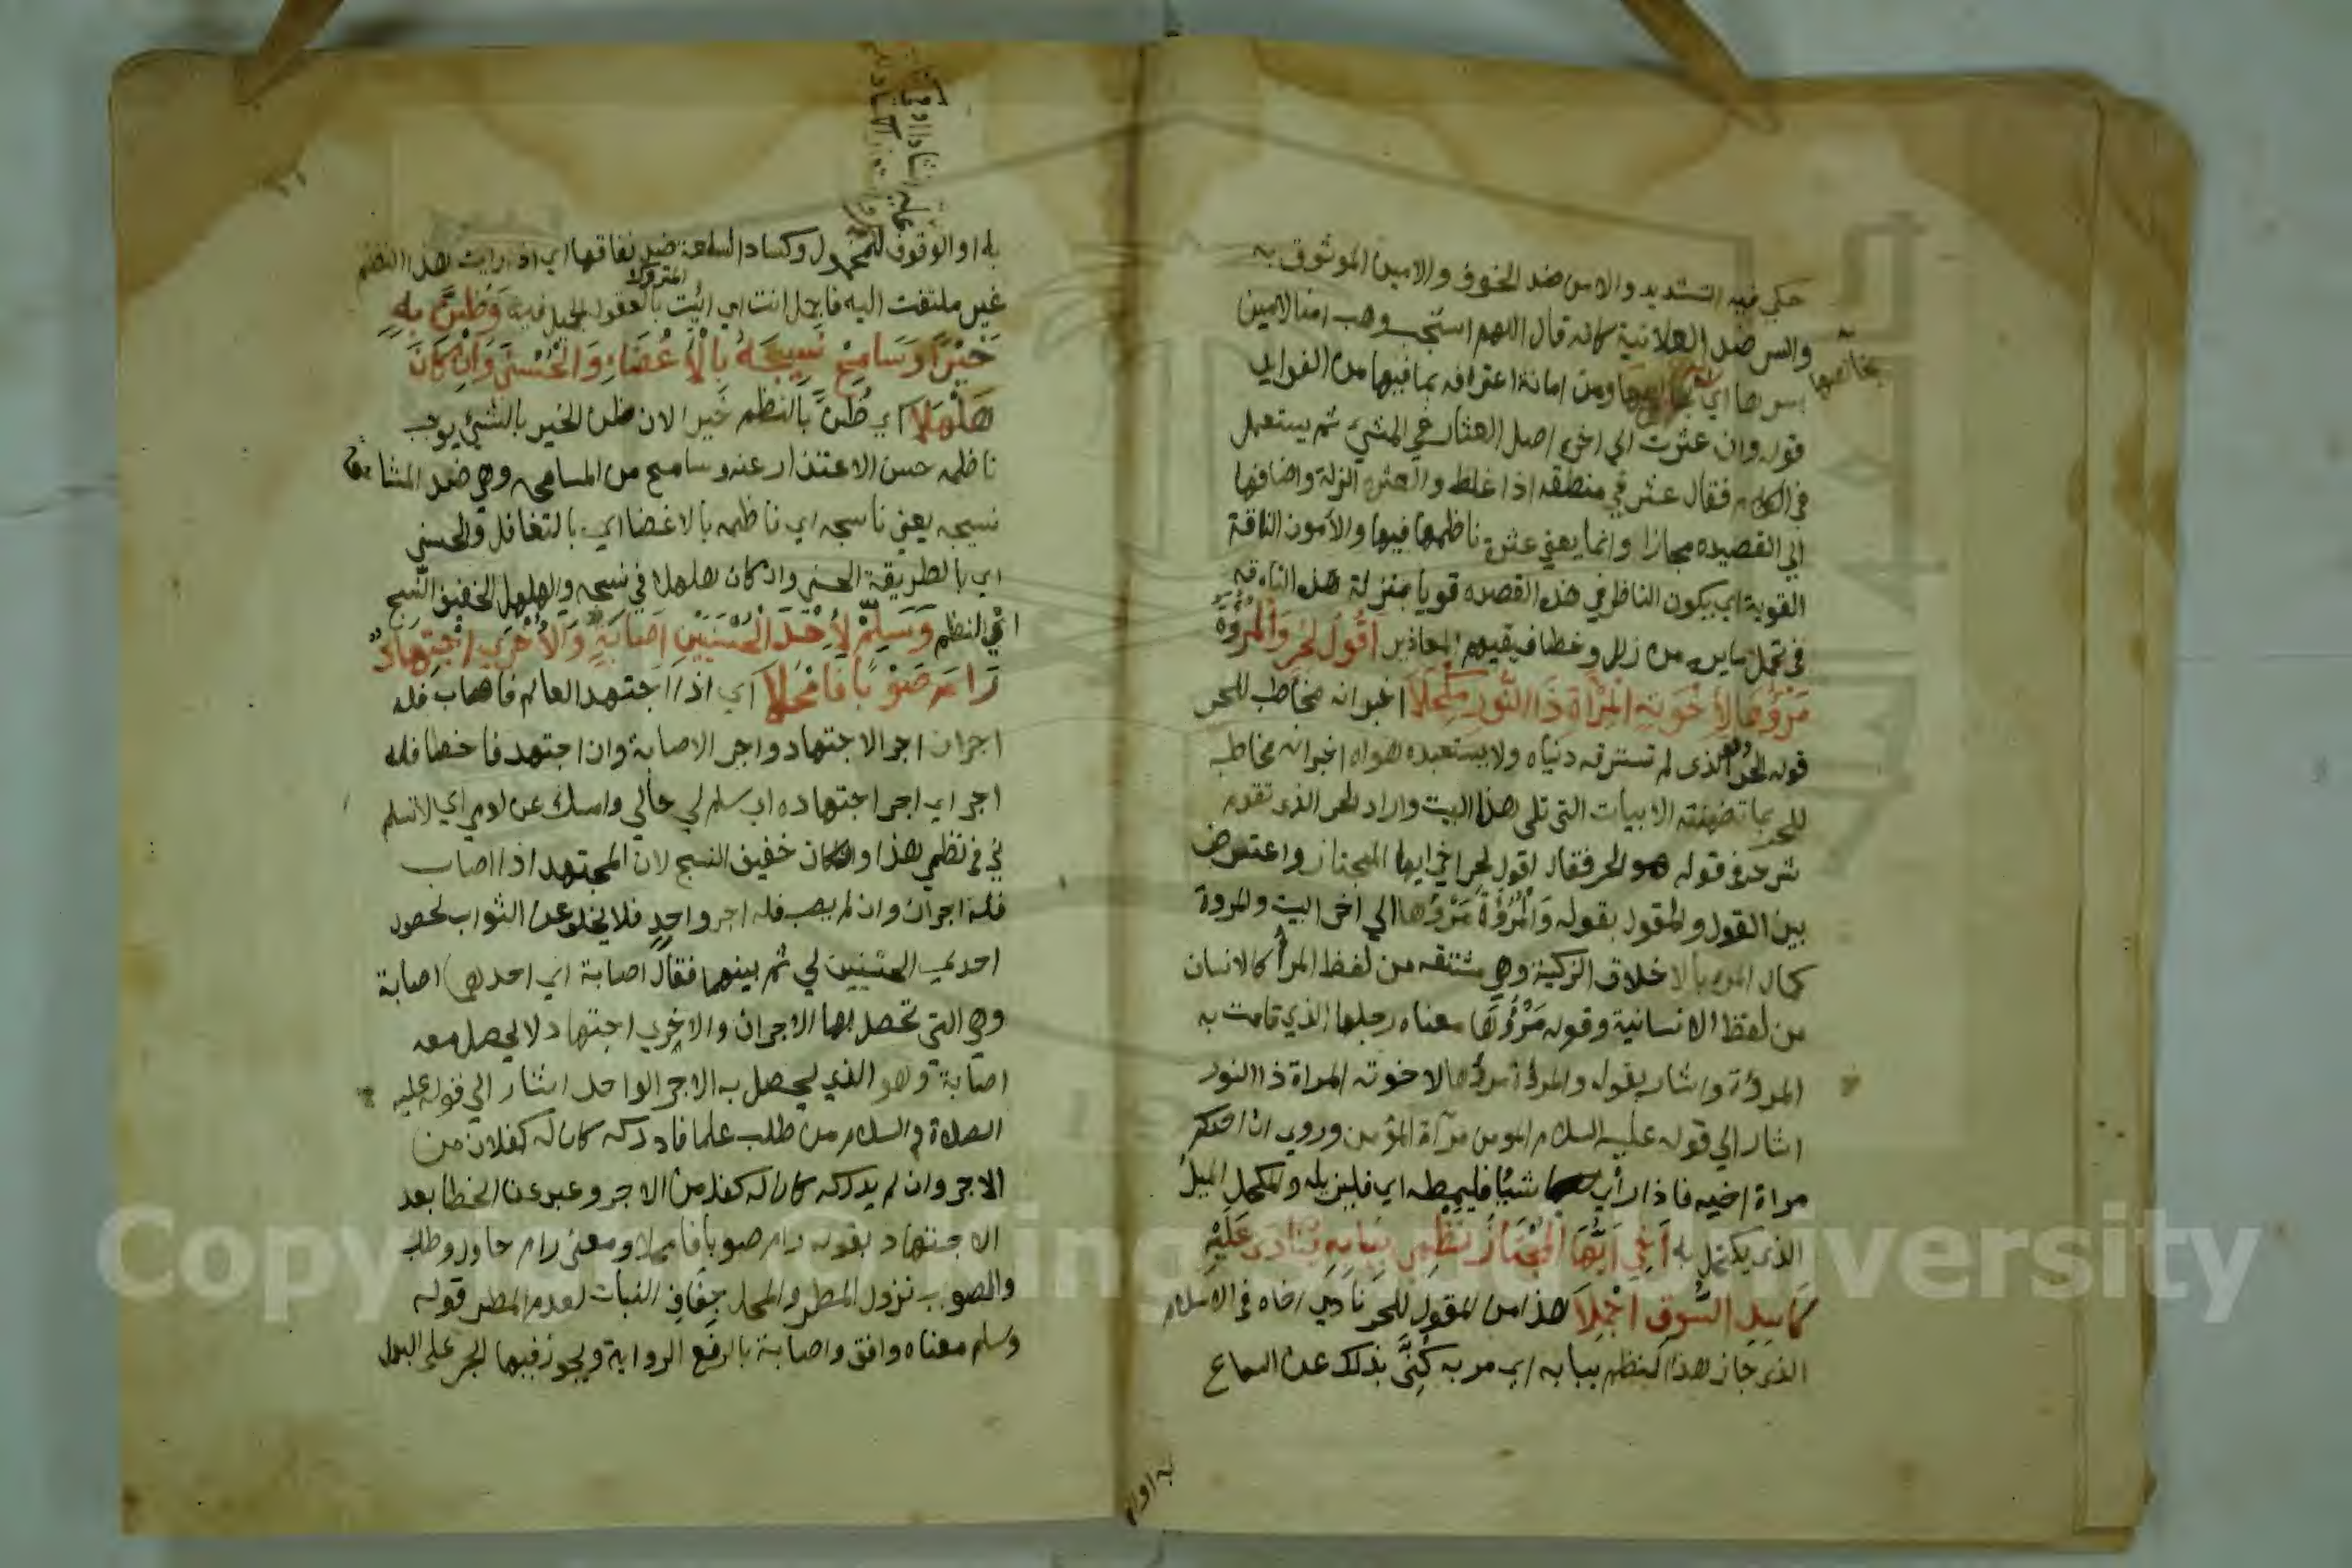 حكي فيه التشديد والامن ضد الخوف والامين الموثوق به
والسر ضد العلانية كانه قال اللهم استجب وهب امنا لامين
بسرها اي بخالصها ومن امانة اعترافه بما فيها من الفوايد
قوله وان عثرت الي اخره اصل العثار في المشي ثم يستعمل
في الكلام فقال عثر في منطقه اذا غلط والعثره الزلة واضافها
الي القصيده مجازا وانما يعني عثرة ناظمها فيها والأمون الناقة
القوية اي يكون الناظر في هذه القصيده قويا بمنزلة هذه الناقه
في تحمل مايراه من زلل وخطا فيقيم المعاذير أقُولُ لحُرٍّ وَالْمُرُوَّةُ
مَرْؤُهَا لِإِخْوَتِهِ الْمِرْآةُ ذُا النُّورِ مِكْحَلَا اخبر انه مخاطب للحر
قوله لحر وهو الذى لم تسترقه دنياه ولا يستعبده هواه اخبر انه مخاطب
للحر بما تضمنته الابيات التي تلي هذا البيت واراد بالحر الذي تقدم
شرحه في قوله هو الحر فقال اقول لحر اخي ايها المجتاز واعترض
بين القول والمقول بقوله وَالْمُرُوَّةُ مَرْؤُهَا الي اخر البيت والمروة
كمال المرء بالاخلاق الزكية وهي مشتقه من لفظ المرأ كالانسان
من لفظ الانسانية وقوله مَرْؤُهَا معناه رجلها الذي قامت به
المروة واشار بقوله والمروة مرؤها لاخوته المراة ذا النور
اشار الي قوله عليه السلام المومن مرآة المؤمن وروي ان احدكم
مراة اخيه فاذا رأي شيئا فليمطه اي فليزيله والمكحل الميل
الذى يكتحل به أَخِي أَيُّهَا الْمُجْتَازُ نَظْمِي بِبَابِهِ يُنَادَى عَلَيْهِ
كَاسِدِ السُّوقِ اَجْمِلَا هذا من المقول للحر نادي اخاه في الاسلام
الذى جاز هذا النظم ببابه اي مر به كَنَّى بذلك عن السماع
به او الوقوف
به او الوقوف وكساد السلعة ضد نفاقها اي اذا رايت هذا النظم
غير ملتفت اليه فاجمل انت اي ائت بالقول الجميل فيه وَظُنَّ بِهِ
خَيْرًا وَسَامِحْ نَسِيجَهُ بِالْأِغْضَاءِ وَالْحُسْنَي وَإِنْ كَانَ
هَلْهَلَا اي ظُنَّ بالنظم خيرا لان ظن الخير بالشئ يوجب
ناظمه حسن الاعتذار عنه وسامح من المسامحه وهي ضد المشاححة
نسيجه يعني ناسجه اي ناظمه بالاغضا اي بالتغافل والحسنى
اي بالطريقة الحسنى وان كان هلهلا في نسجه والهلهل الخفيف النسج
اي النظم وَسَلِّمْ لِأَحْدَ الْحُسْنَيَيْنِ اِصَابَةٍ وَالْأُخْرَى اجْتِهَادٌ
رَامَ صَوْبًا فَامْحَلَا اي اذا اجتهد العالم فاصاب فله
اجران اجر الاجتهاد واجر الاصابة وان اجتهد فاخطا فله
اجر اي اجر اجتهاده اي سلم لي حالي وامسك عن لومي اي لاتسلم
لي في نظمي هذا وان كان خفيف النسج لان المجتهد اذا اصاب
فله اجران وان لم يصب فله اجر واحد فلا يخلو عن الثواب لحصول
احدي الحسنيين لي ثم بينهما فقال اصابة اي احداهما اصابة
وهي التي تحصل بها الاجران والاخري اجتهاد لا يحصل معه
اصابة وهو الذي يحصل به الاجر الواحد اشار الي قوله عليه
الصلاة والسلام من طلب علما فادركه كان له كفلان من
الاجر وان لم يدركه كان له كفل من الاجر وعبر عن الخطا بعد
الاجتهاد بقوله رام صوبا فامحلا ومعنى رام حاول وطلب
والصوب نزول المطر والمحل جفاف النبات لعدم المطر قوله
وسلم معناه وافق واصابة بالرفع الرواية ويجوز فيها الجر على البدل
Copyright © King Saud University